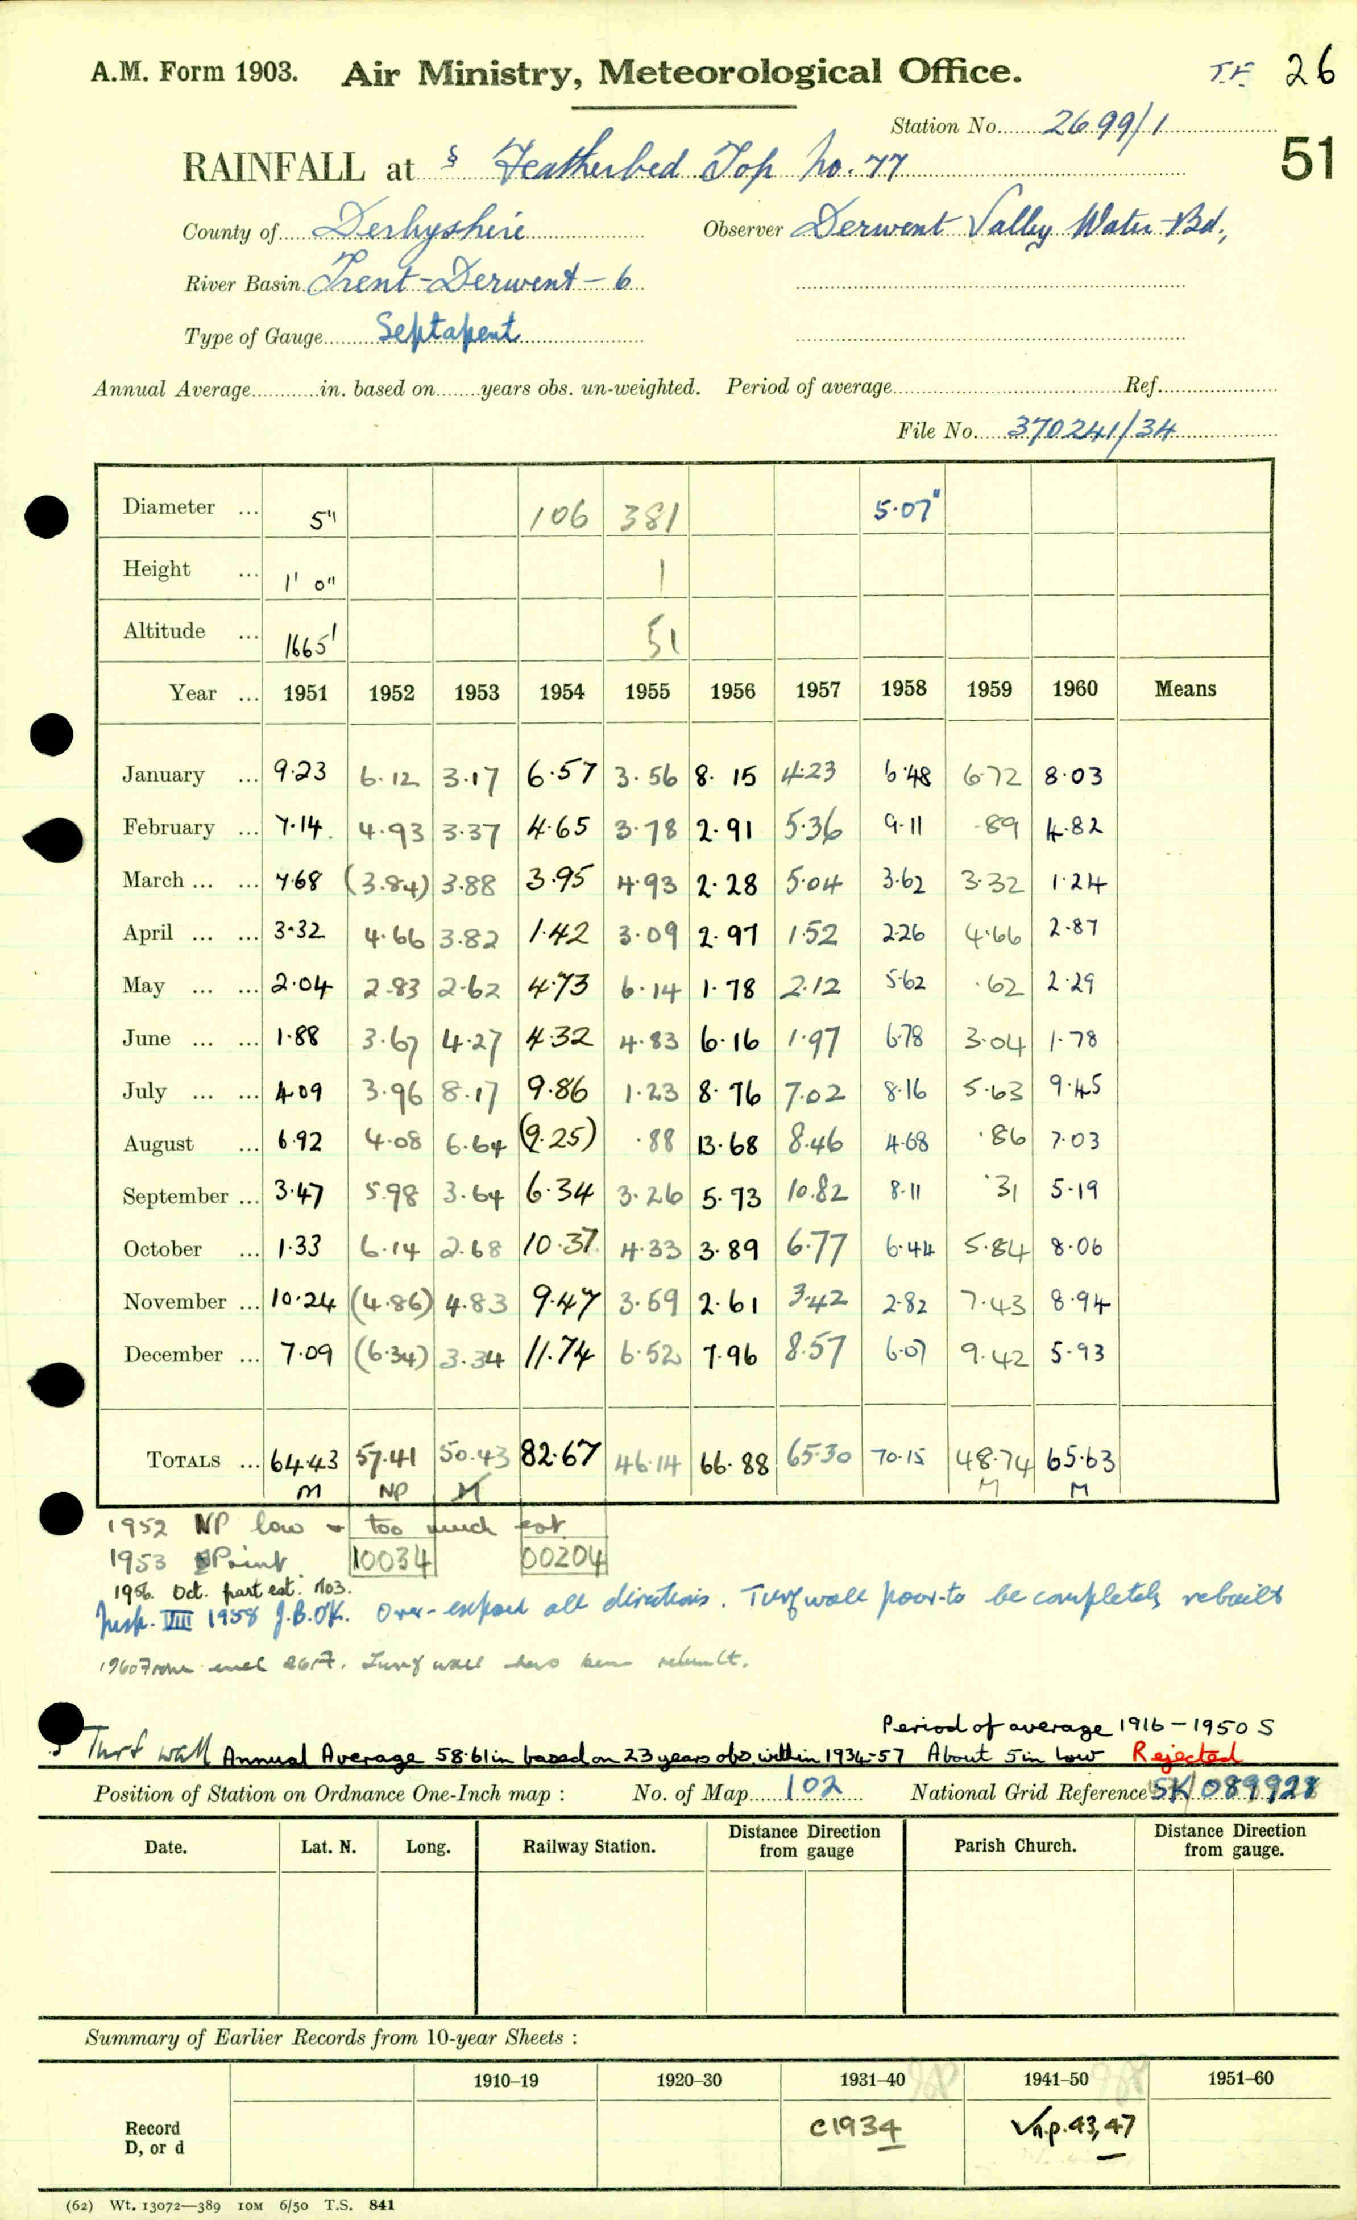 A.M. Form 1903. Air Ministry, Meteorological Office. T.F. 26
Station No. 2699/1
51
RAINFALL at § Featherbed Top No. 77
County of Derbyshire Observer Derwent Valley Water Bd.,
River Basin Trent-Derwent-6
Type of Gauge Septapent
Annual Average in. based on years obs. un-weighted. Period of average Ref.
File No. 370241/34
Diameter ... 5" 106 381 5.07"
Height ... 1' 0" 1
Altitude ... 1665' 51
Year ... 1951 1952 1953 1954 1955 1956 1957 1958 1959 1960 Means
January ... 9.23 6.12 3.17 6.57 3.56 8.15 4.23 6.48 6.72 8.03
February ... 7.14 4.93 3.37 4.65 3.78 2.91 5.36 9.11 .89 4.82
March ... ... 7.68 (3.84) 3.88 3.95 4.93 2.28 5.04 3.62 3.32 1.24
April ... ... 3.32 4.66 3.82 1.42 3.09 2.97 1.52 2.26 4.66 2.87
May ... ... 2.04 2.83 2.62 4.73 6.14 1.78 2.12 5.62 .62 2.29
June ... ... 1.88 3.67 4.27 4.32 4.83 6.16 1.97 6.78 3.04 1.78
July ... ... 4.09 3.96 8.17 9.86 1.23 8.76 7.02 8.16 5.63 9.45
August ... 6.92 4.08 6.64 (9.25) .88 13.68 8.46 4.68 .86 7.03
September ... 3.47 5.98 3.64 6.34 3.26 5.93 10.82 8.11 .31 5.19
October ... 1.33 6.14 2.68 10.37 4.33 3.89 6.77 6.44 5.84 8.06
November ... 10.24 (4.86) 4.83 9.47 3.59 2.61 3.42 2.82 7.43 8.94
December ... 7.09 (6.34) 3.34 11.74 6.52 7.96 8.57 6.07 9.42 5.93
TOTALS ... 64.43 57.41 50.43 82.67 46.14 66.88 65.30 70.15 48.74 65.63
M NP M M M
1952 NP low + too much est
1953 Point 10034 00204
1956. Oct. part est. No3.
Insp. VIII 1958 J.B.O'K. Over-exposed all directions. Turf wall poor-to be completely rebuilt
Turf wall has been rebuilt.
Period of average 1916-1950 S
§ Turf wall Annual Average 58.61in based on 23 years obs. within 1934-57 About 5in low Rejected
Position of Station on Ordnance One-Inch map : No. of Map 102 National Grid Reference SK 089928
Date. Lat. N. Long. Railway Station. Distance from Direction gauge Parish Church. Distance from Direction gauge.
Summary of Earlier Records from 10-year Sheets :
1910–19 1920–30 1931–40 1941–50 1951–60
Record D, or d C1934 √n.p. 43, 47
(62) Wt. 13072—389 10M 6/50 T.S. 841